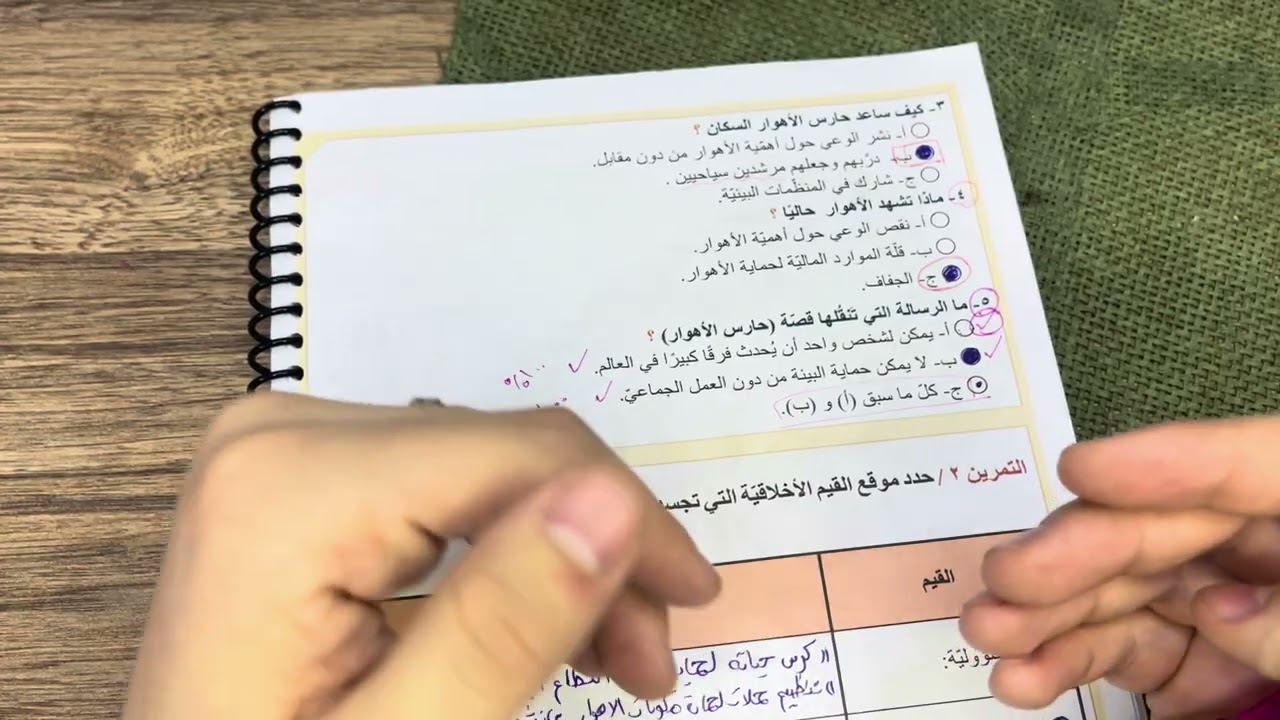 ٣- كيف ساعد حارس الأهوار السكان ؟
أ- نشر الوعي حول أهمّية الأهوار من دون مقابل.
ب- درّبهم وجعلهم مرشدين سياحيين .
ج- شارك في المنظّمات البيئيّة.
٤- ماذا تشهد الأهوار حاليّا ؟
أ- نقص الوعي حول أهميّة الأهوار.
ب- قلّة الموارد الماليّة لحماية الأهوار.
ج- الجفاف.
٥- ما الرسالة التي تَنقُلها قصّة (حارس الأهوار) ؟
أ- يمكن لشخص واحد أن يُحدث فرقًا كبيرًا في العالم.
ب- لا يمكن حماية البيئة من دون العمل الجماعيّ.
ج- كلّ ما سبق (أ) و (ب).
التمرين ٢ / حدد موقع القيم الأخلاقيّة التي
القيم
كرس حياته
تنظيم حملات لحماية الاهوار